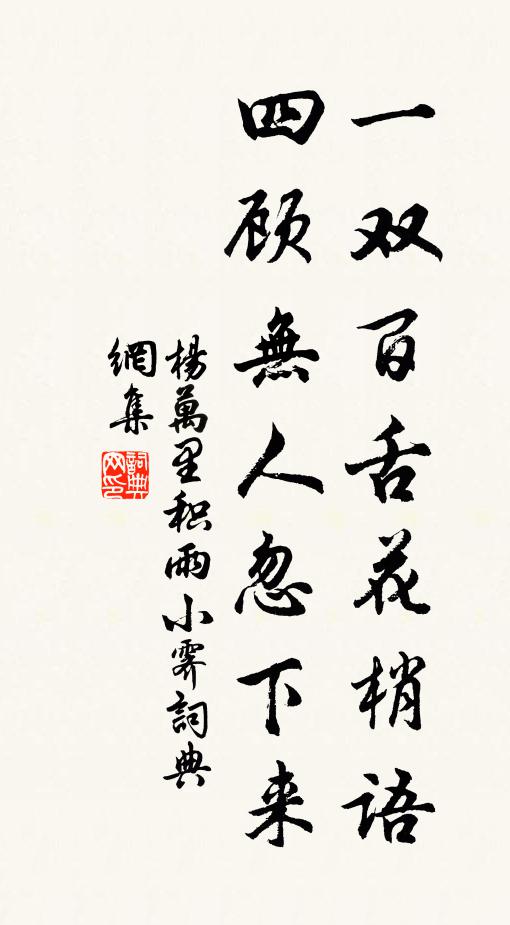 一双百舌花梢語
四顾無人忽下来
楊萬里积雨小霽詞典
網集
詞典
网印